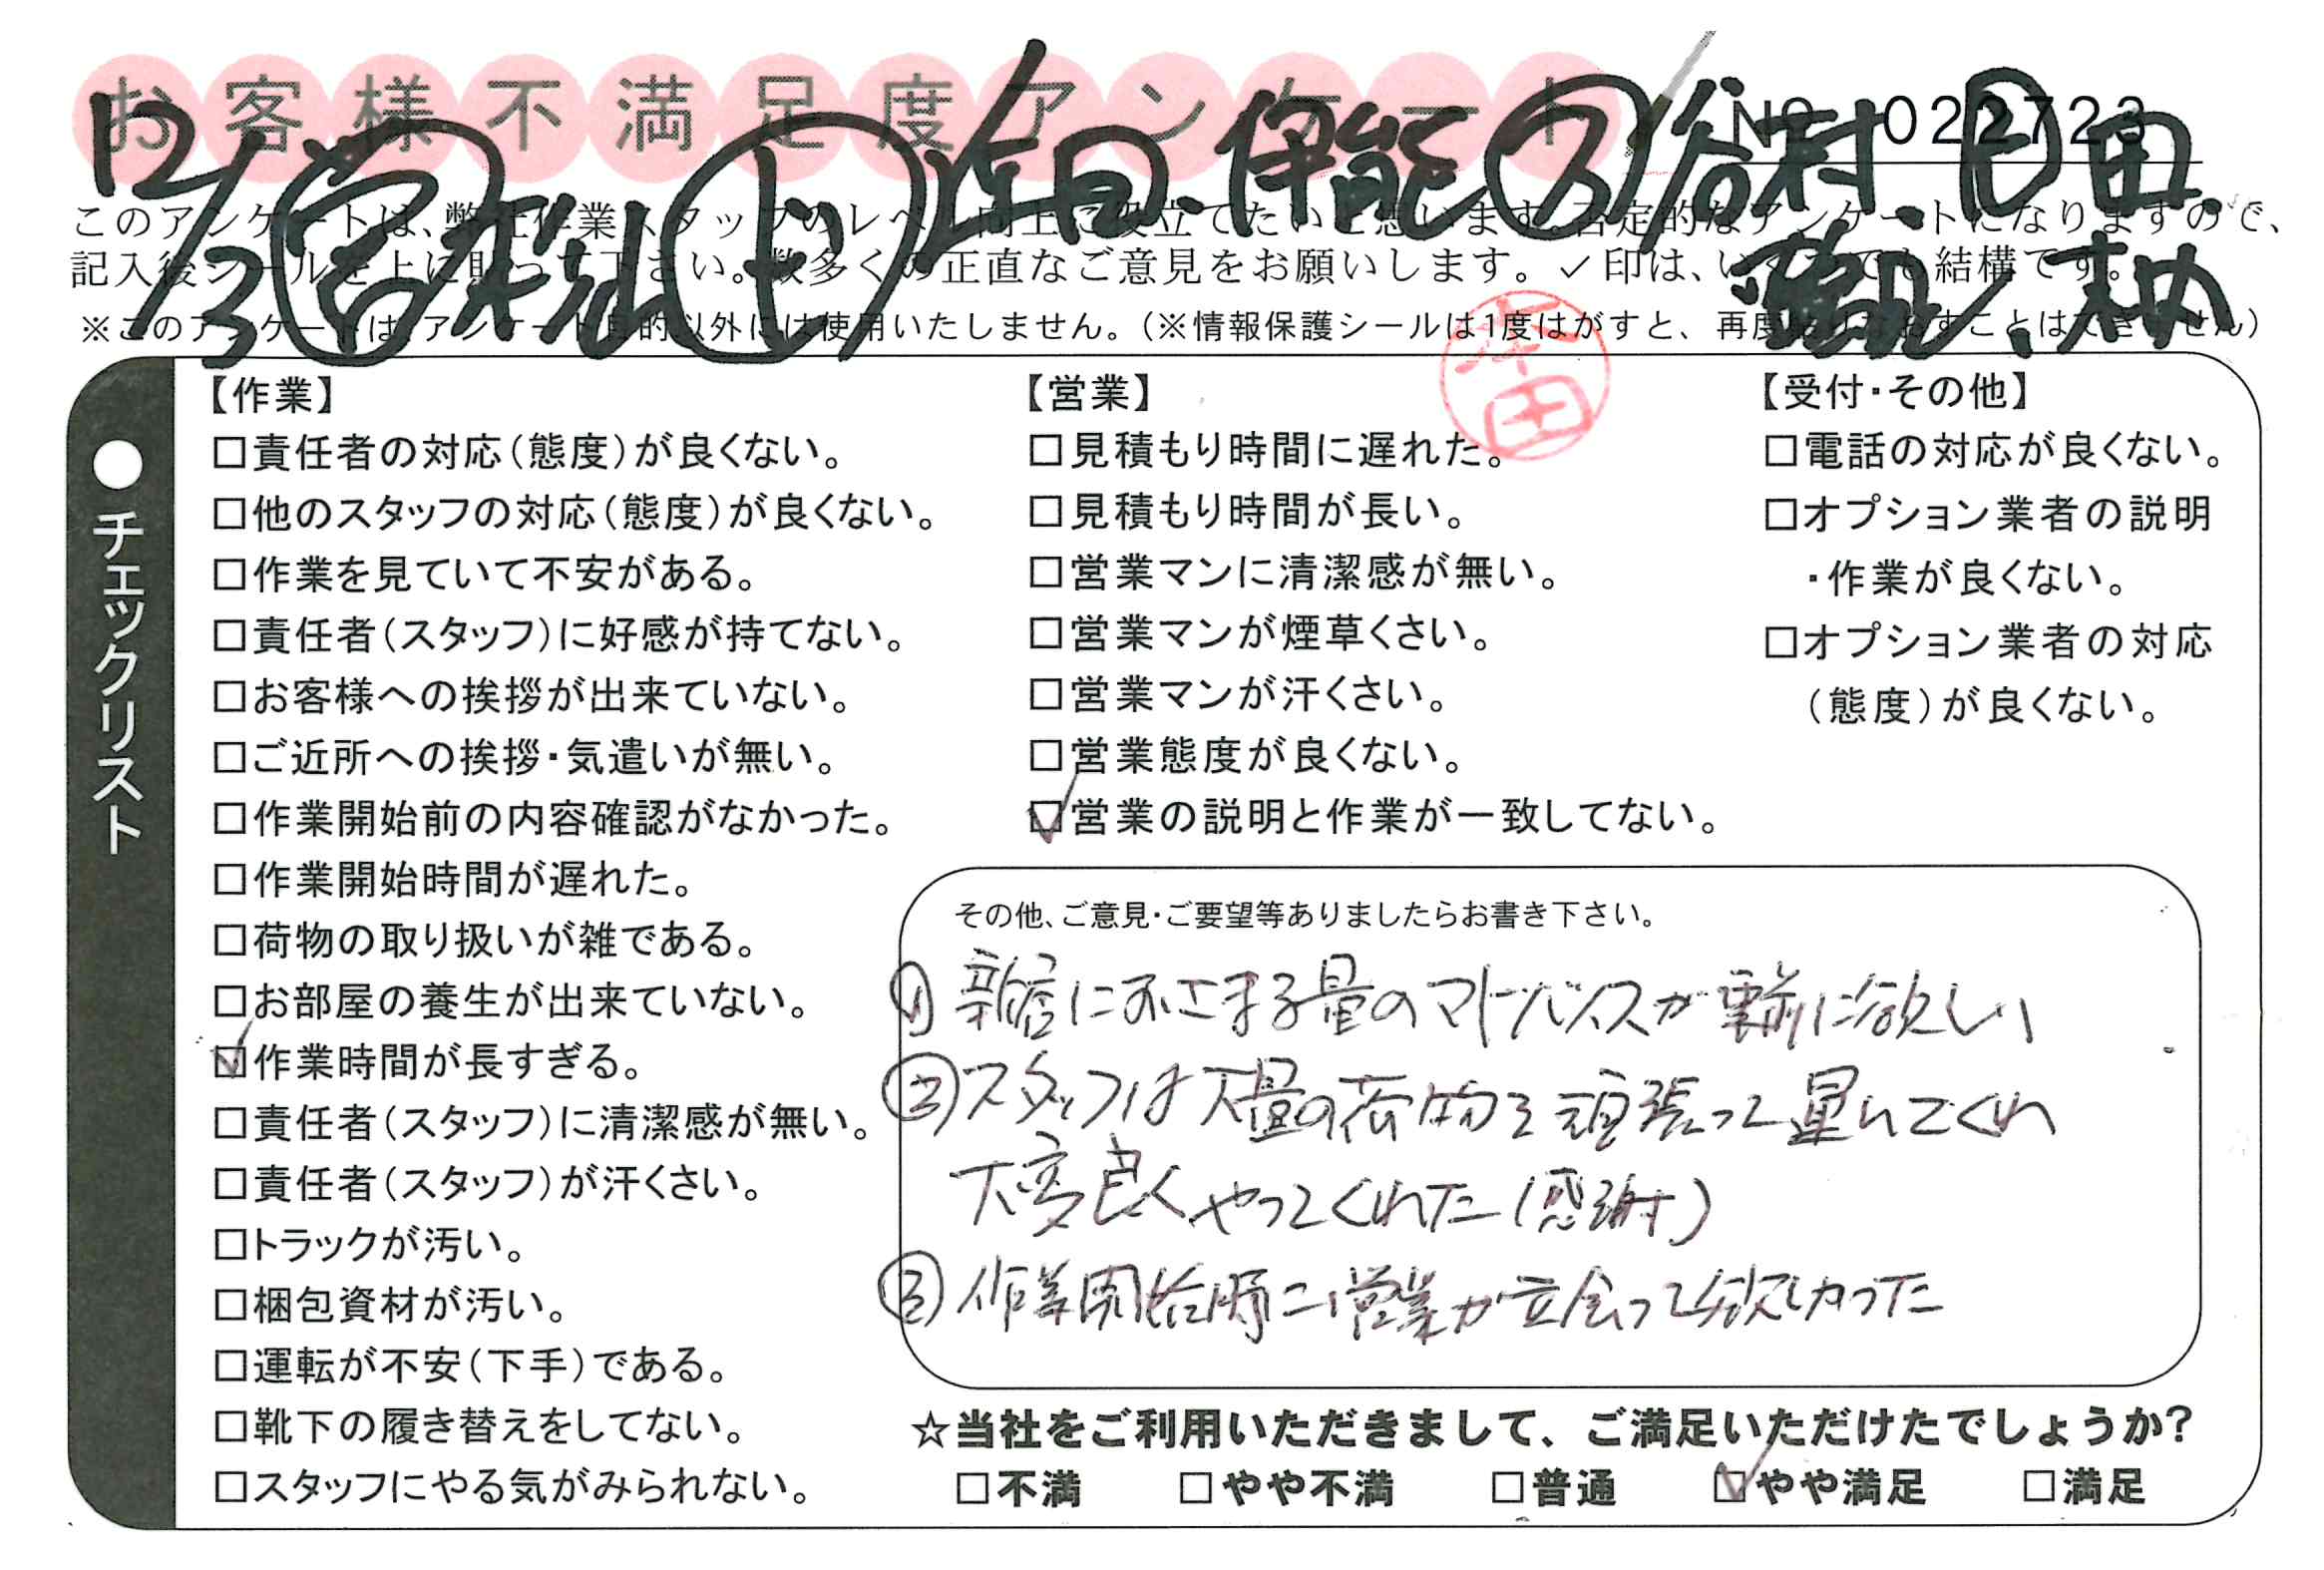 お客様不満足度アンケート
No 022723
12/3 営 ド 生田、伊能 ス 谷村、山田、
このアンケートは、弊社作業スタッフのレベル向上に役立てたいと思います。否定的なアンケートになりますので、
記入後シールを上に貼って下さい。数多くの正直なご意見をお願いします。✓印は、いくつでも結構です。
※このアンケートは、アンケート目的以外には使用いたしません。（※情報保護シールは1度はがすと、再度貼りなおすことはできません）
●チェックリスト
【作業】
□責任者の対応（態度）が良くない。
□他のスタッフの対応（態度）が良くない。
□作業を見ていて不安がある。
□責任者（スタッフ）に好感が持てない。
□お客様への挨拶が出来ていない。
□ご近所への挨拶・気遣いが無い。
□作業開始前の内容確認がなかった。
□作業開始時間が遅れた。
□荷物の取り扱いが雑である。
□お部屋の養生が出来ていない。
☑作業時間が長すぎる。
□責任者（スタッフ）に清潔感が無い。
□責任者（スタッフ）が汗くさい。
□トラックが汚い。
□梱包資材が汚い。
□運転が不安（下手）である。
□靴下の履き替えをしてない。
□スタッフにやる気がみられない。
【営業】
□見積もり時間に遅れた。
□見積もり時間が長い。
□営業マンに清潔感が無い。
□営業マンが煙草くさい。
□営業マンが汗くさい。
□営業態度が良くない。
☑営業の説明と作業が一致してない。
【受付・その他】
□電話の対応が良くない。
□オプション業者の説明
・作業が良くない。
□オプション業者の対応
（態度）が良くない。
その他、ご意見・ご要望等ありましたらお書き下さい。
① 新居におさまる量のアドバイスが事前に欲しい
② スタッフは大量の荷物を頑張って運んでくれ
大変良くやってくれた（感謝）
③ 作業開始時に営業が立会って欲しかった
☆当社をご利用いただきまして、ご満足いただけたでしょうか?
□不満 □やや不満 □普通 ☑やや満足 □満足